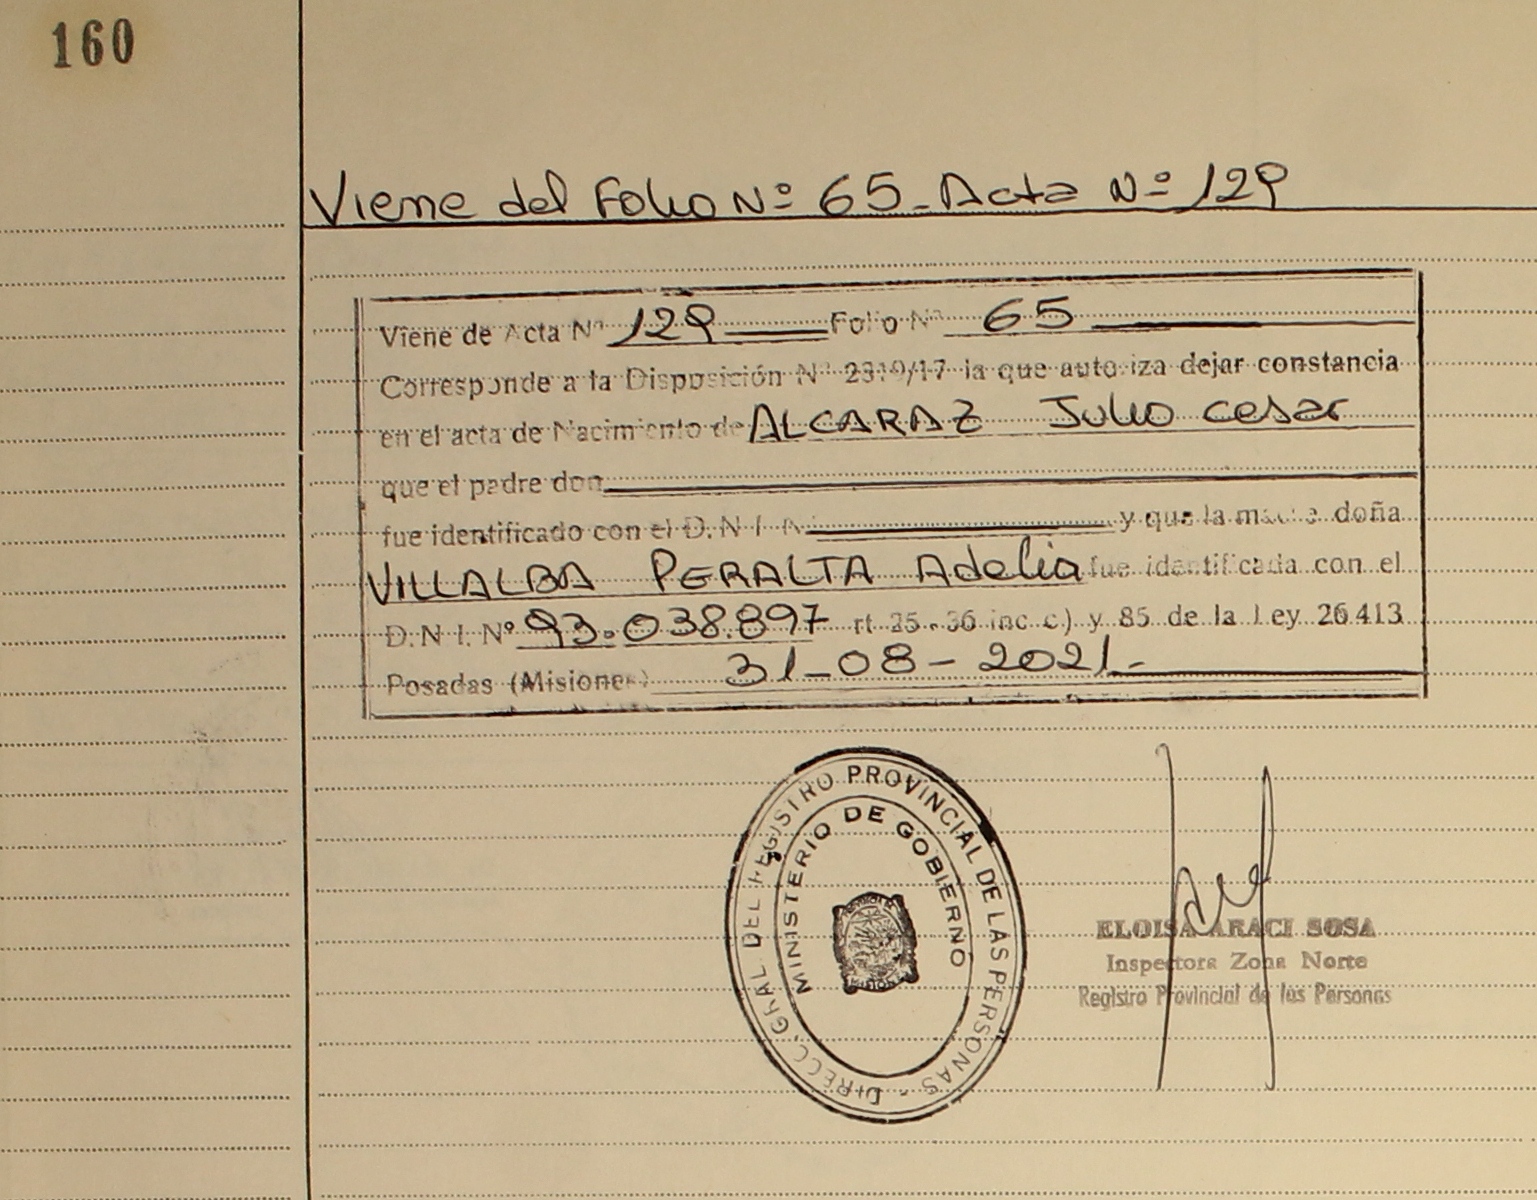 160
Viene del Folio Nº 65 - Acta Nº 129
Viene de Acta Nº 129 Folio Nº 65
Corresponde a la Disposición Nº 2319/17 la que autoriza dejar constancia
en el acta de Nacimiento de ALCARAZ Julio Cesar
que el padre don
fue identificado con el D.N.I. N y que la madre doña
VILLALBA PERALTA Adelia fue identificada con el
D.N.I. Nº 93.038.897 rt 35-36 inc c) y 85 de la Ley 26.413
Posadas (Misiones) 31-08-2021.-
DIRECC. GRAL. DEL REGISTRO PROVINCIAL DE LAS PERSONAS -
MINISTERIO DE GOBIERNO
ELOISA ARACI SOSA
Inspectora Zona Norte
Registro Provincial de las Personas